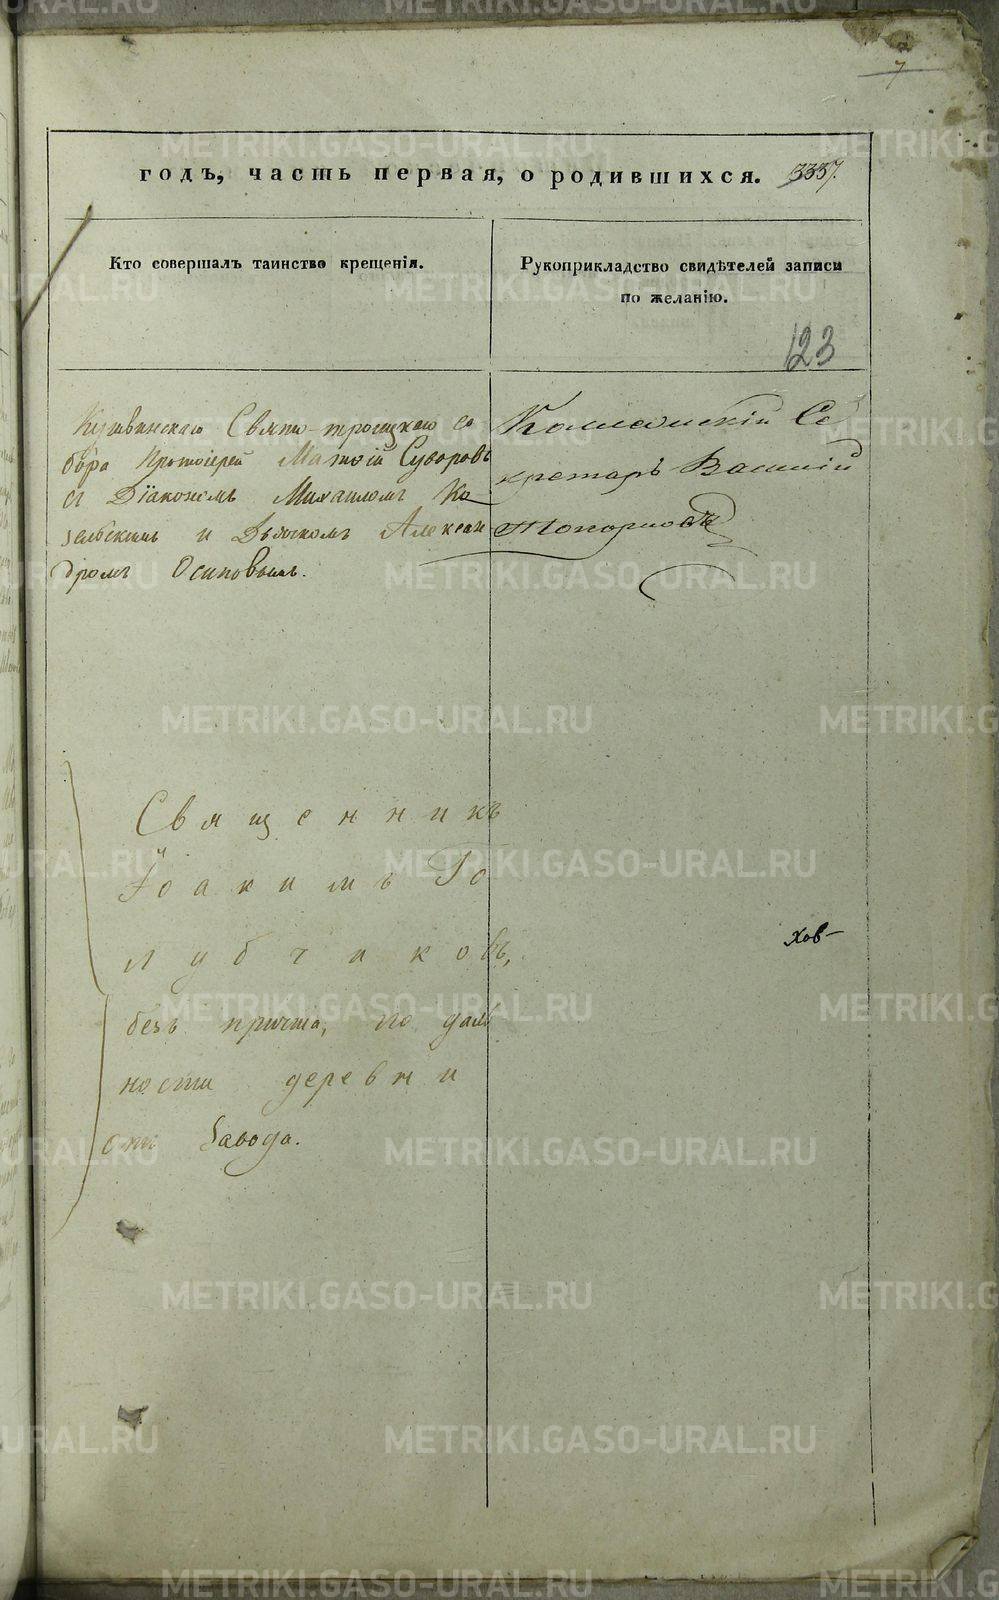 7
годъ, часть первая, о родившихся. 3337.
Кто совершалъ таинство крещенія.
Рукоприкладство свидѣтелей записи
по желанію.
123
Кушвинскаго Свято-троицкаго со
бора Протоіерей Матѳій Суворовъ
съ Діакономъ Михаиломъ Ко
зельскимъ и Дьячкомъ Алексан
дромъ Осиповымъ.
Коллежскій Се
кретарь Василій
Священникъ
Іоакимъ Го
лубчиковъ,
безъ причта, по даль
ности деревни
отъ Завода.
хов-
METRIKI.GASO-URAL.RU